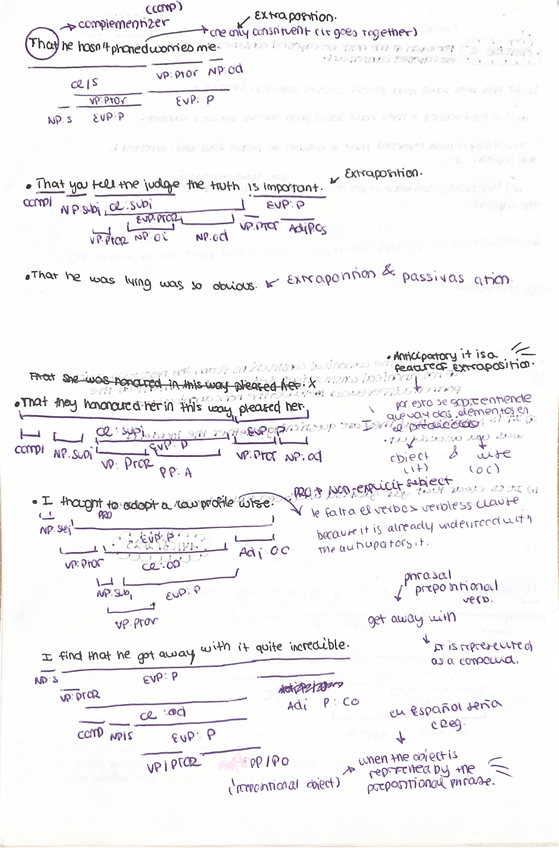 (comp)
complementizer
Extraposition.
one only constituent (it goes together)
That he hasn't phoned worries me.
VP:Pror NP:od
ce/S
VP:Pror EVP: P
NP:S EVP:P
Extraposition.
• That you tell the judge the truth is important.
compl NP:subj ce:subj EVP:P
EVP:Pror
VP:Pror NP:oi NP:od VP:Pror AdjPCs
• That he was lying was so obvious.
• Anticipatory it is a
feature of extraposition.
That she was honoured in this way pleased her. x
• That they hanonured her in this way pleased her.
ce:subj EVP:P
compl NP:subj EVP:P
VP:Pror VP:Pror NP:od
PP:A
por esto se sobreentiende
que van dos elementos en
el
object & wise
(it) (oc)
PRO → Non-explicit subject
• I thought to adopt a low profile wise.
PRO
NP:subj
le falta el verbo → verbless clause
because it is already understood with
the anticipatory it.
EVP:P
VP:Pror ce:od Adj:OC
NP:subj EVP:P
VP:Pror
phrasal
prepositional
verb.
get away with
It is represented
as a compound.
I find that he got away with it quite incredible.
NP:S EVP:P
VP:Pror Adj P:CO
ce:od
comp NP/S EVP:P
VP/Pror PP/PO
(prepositional object)
en Español sería
creg.
when the object is
represented by the
prepositional phrase.